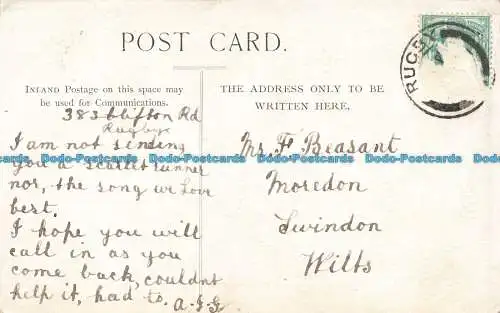 POST CARD.
INLAND Postage on this space may
be used for Communications.
THE ADDRESS ONLY TO BE
WRITTEN HERE,
RUGBY
383 Clifton Rd
Rugby
I am not sending
you a scarlet runner
nor, the song we love
best.
I hope you will
call in as you
come back, couldnt
help it, had to. A-J-G
Mr. F Beasant
Moredon
Swindon
Wilts
Dodo-Postcards Dodo-Postcards Dodo-Postcards Dodo-Postcards